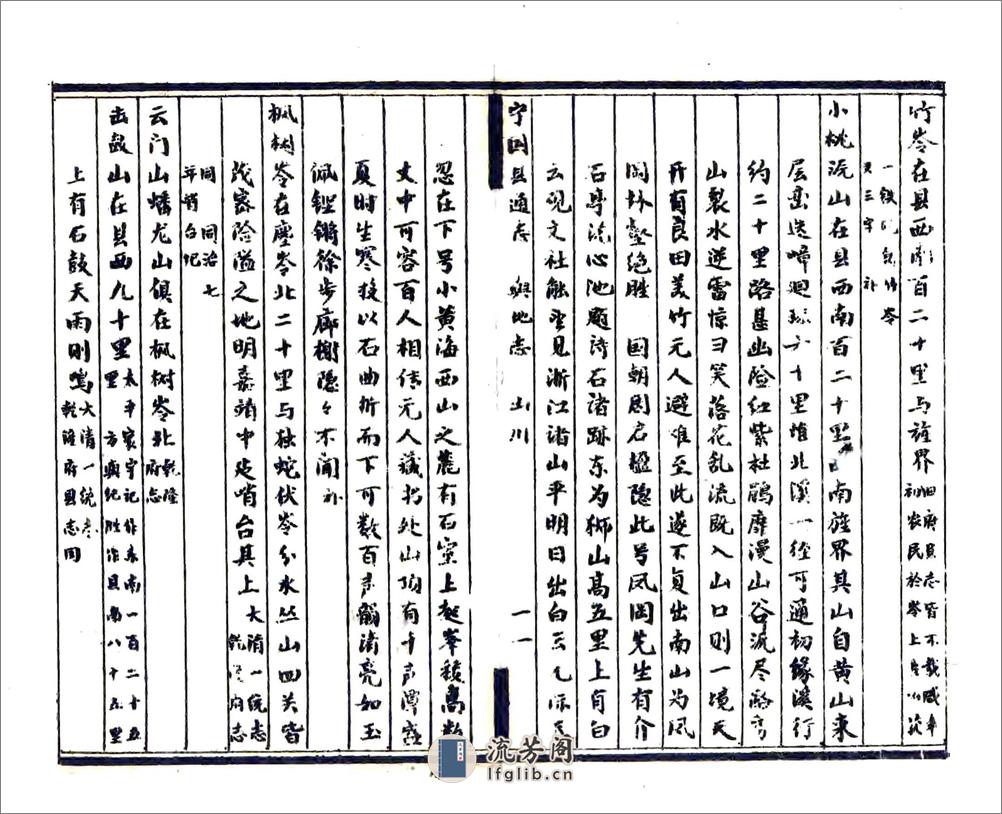 竹岺在县西南百二十里与旌界旧府县志皆不载咸丰初农民於岺上
又三字补
小桃源山在县西南百二十里西南旌界其山自黄山来
层峦迭嶂廻环六十里惟北溪一径可通初缘溪行
约二十里路甚幽险红紫杜鹃靡漫山谷流尽
山裂水逆雷惊日笑落花乱流既入山口则一境天
开有良田美竹元人避难至此遂不复出南山为凤
冈林壑绝胜 国朝周启楹隐此号凤冈先生有介
石亭流心池题诗石诸跡东为狮山高五里上有白
云观文社触望见浙江诸山平明日出白云
宁国县通志 舆地志 山川 一一
忍在下号小黄海西山之麓有石室上起峯稜高数
丈中可容百人相传元人藏书处山顶有千声潭盛
夏时生寒投以石曲折而下可数百声韻清亮如玉
佩铿锵徐步廊榭隐々不闻补
枫树岺在塵岺北二十里与独蛇伏岺分水丛山四关皆
茂密险隘之地明嘉靖中建哨台其上大清一统志乾隆府志
同 同治七
年
云门山蟠龙山俱在枫树岺北乾隆府志
击鼓山在县西九十里太平寰宇记作东南一百二十五里 方舆纪胜作县南八十五里
上有石鼓天雨则鸣大清一统志乾隆府县志同
流芳阁
lfglib.cn